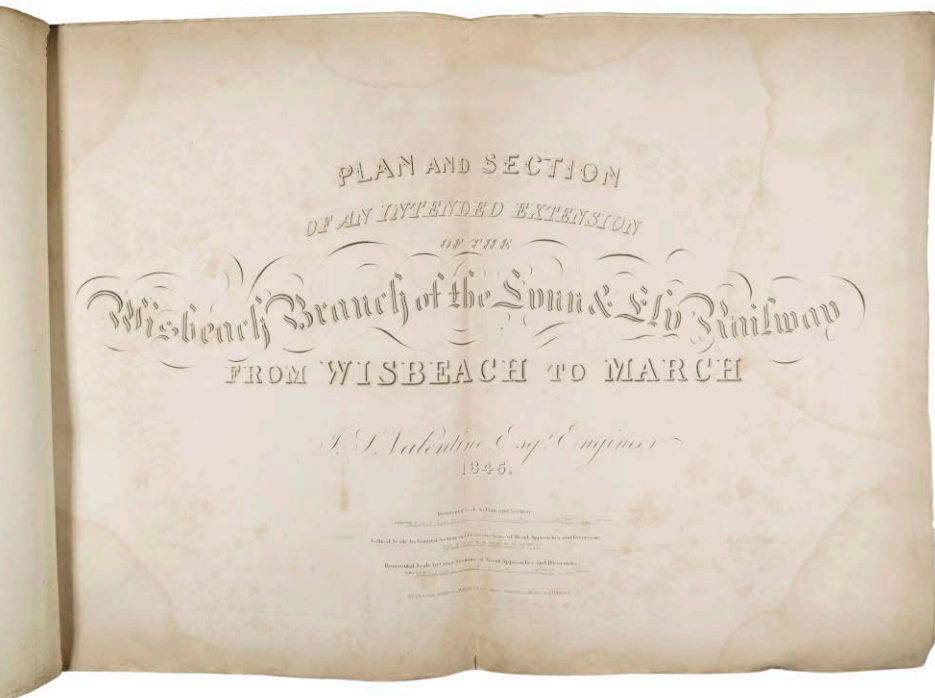 PLAN AND SECTION
OF AN INTENDED EXTENSION
OF THE
Wisbeach Branch of the Lynn & Ely Railway
FROM WISBEACH TO MARCH
J. S. Valentine Esqr. Engineer
1845.
Horizontal Scale to Plan and Section
Vertical Scale to General Section and Cross Sections of Road Approaches and Diversions
Horizontal Scale to Cross Sections of Road Approaches and Diversions